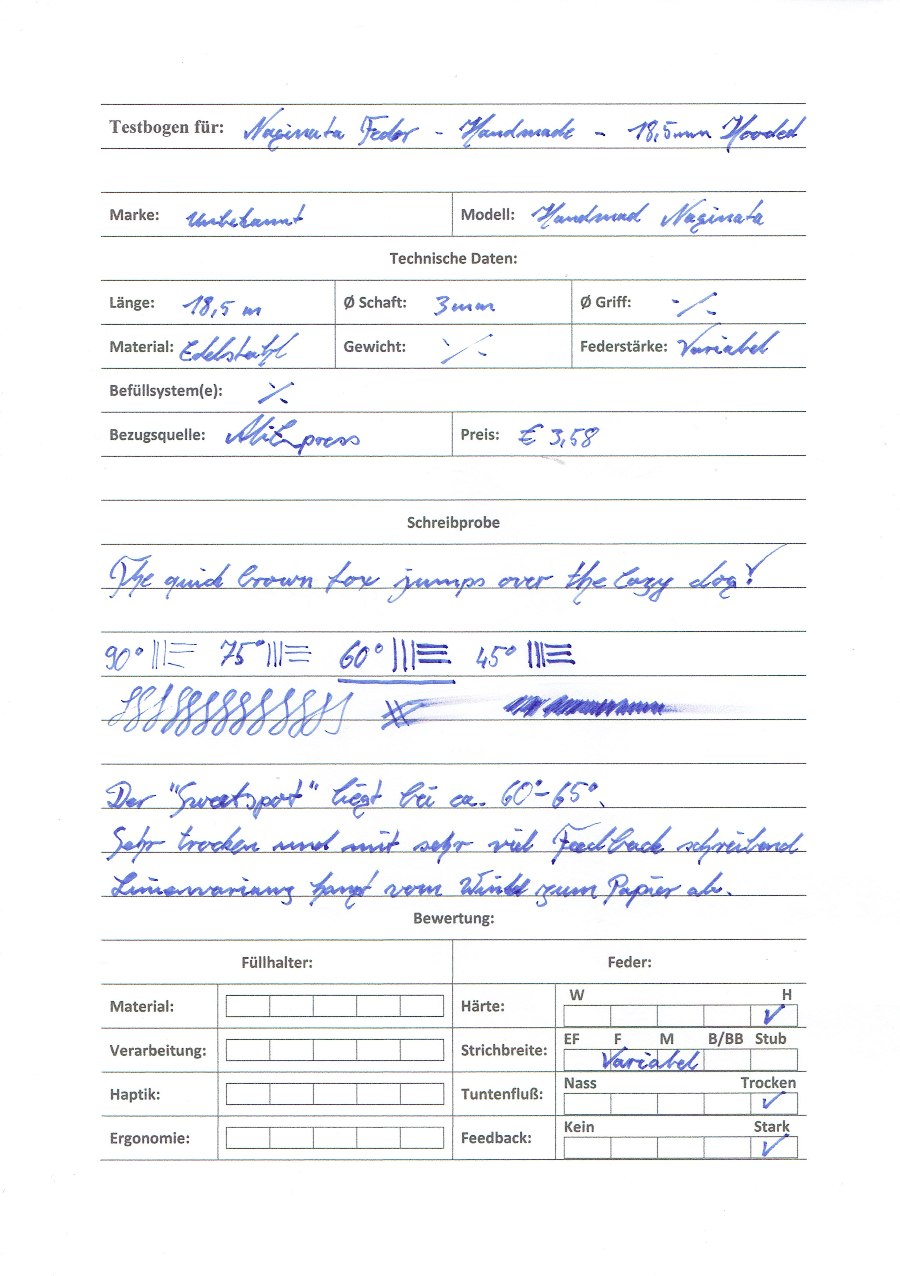 Testbogen für: Naginata Feder - Handmade - 18,5mm Hooded
Marke: Unbekannt Modell: Handmad Naginata
Technische Daten:
Länge: 18,5 m Ø Schaft: 3mm Ø Griff: ·/.
Material: Edelstahl Gewicht: ·/. Federstärke: Variabel
Befüllsystem(e): ·/.
Bezugsquelle: AliExpress Preis: € 3,58
Schreibprobe
The quick brown fox jumps over the lazy dog!
90° 75° 60° 45°
Der "Sweetspot" liegt bei ca. 60°-65°.
Sehr trocken und mit sehr viel Feedback schreibend
Linienvarianz hängt vom Winkel zum Papier ab.
Bewertung:
Füllhalter: Feder:
Material: Härte: W H ✓
Verarbeitung: Strichbreite: EF F M B/BB Stub Variabel
Haptik: Tuntenfluß: Nass Trocken ✓
Ergonomie: Feedback: Kein Stark ✓